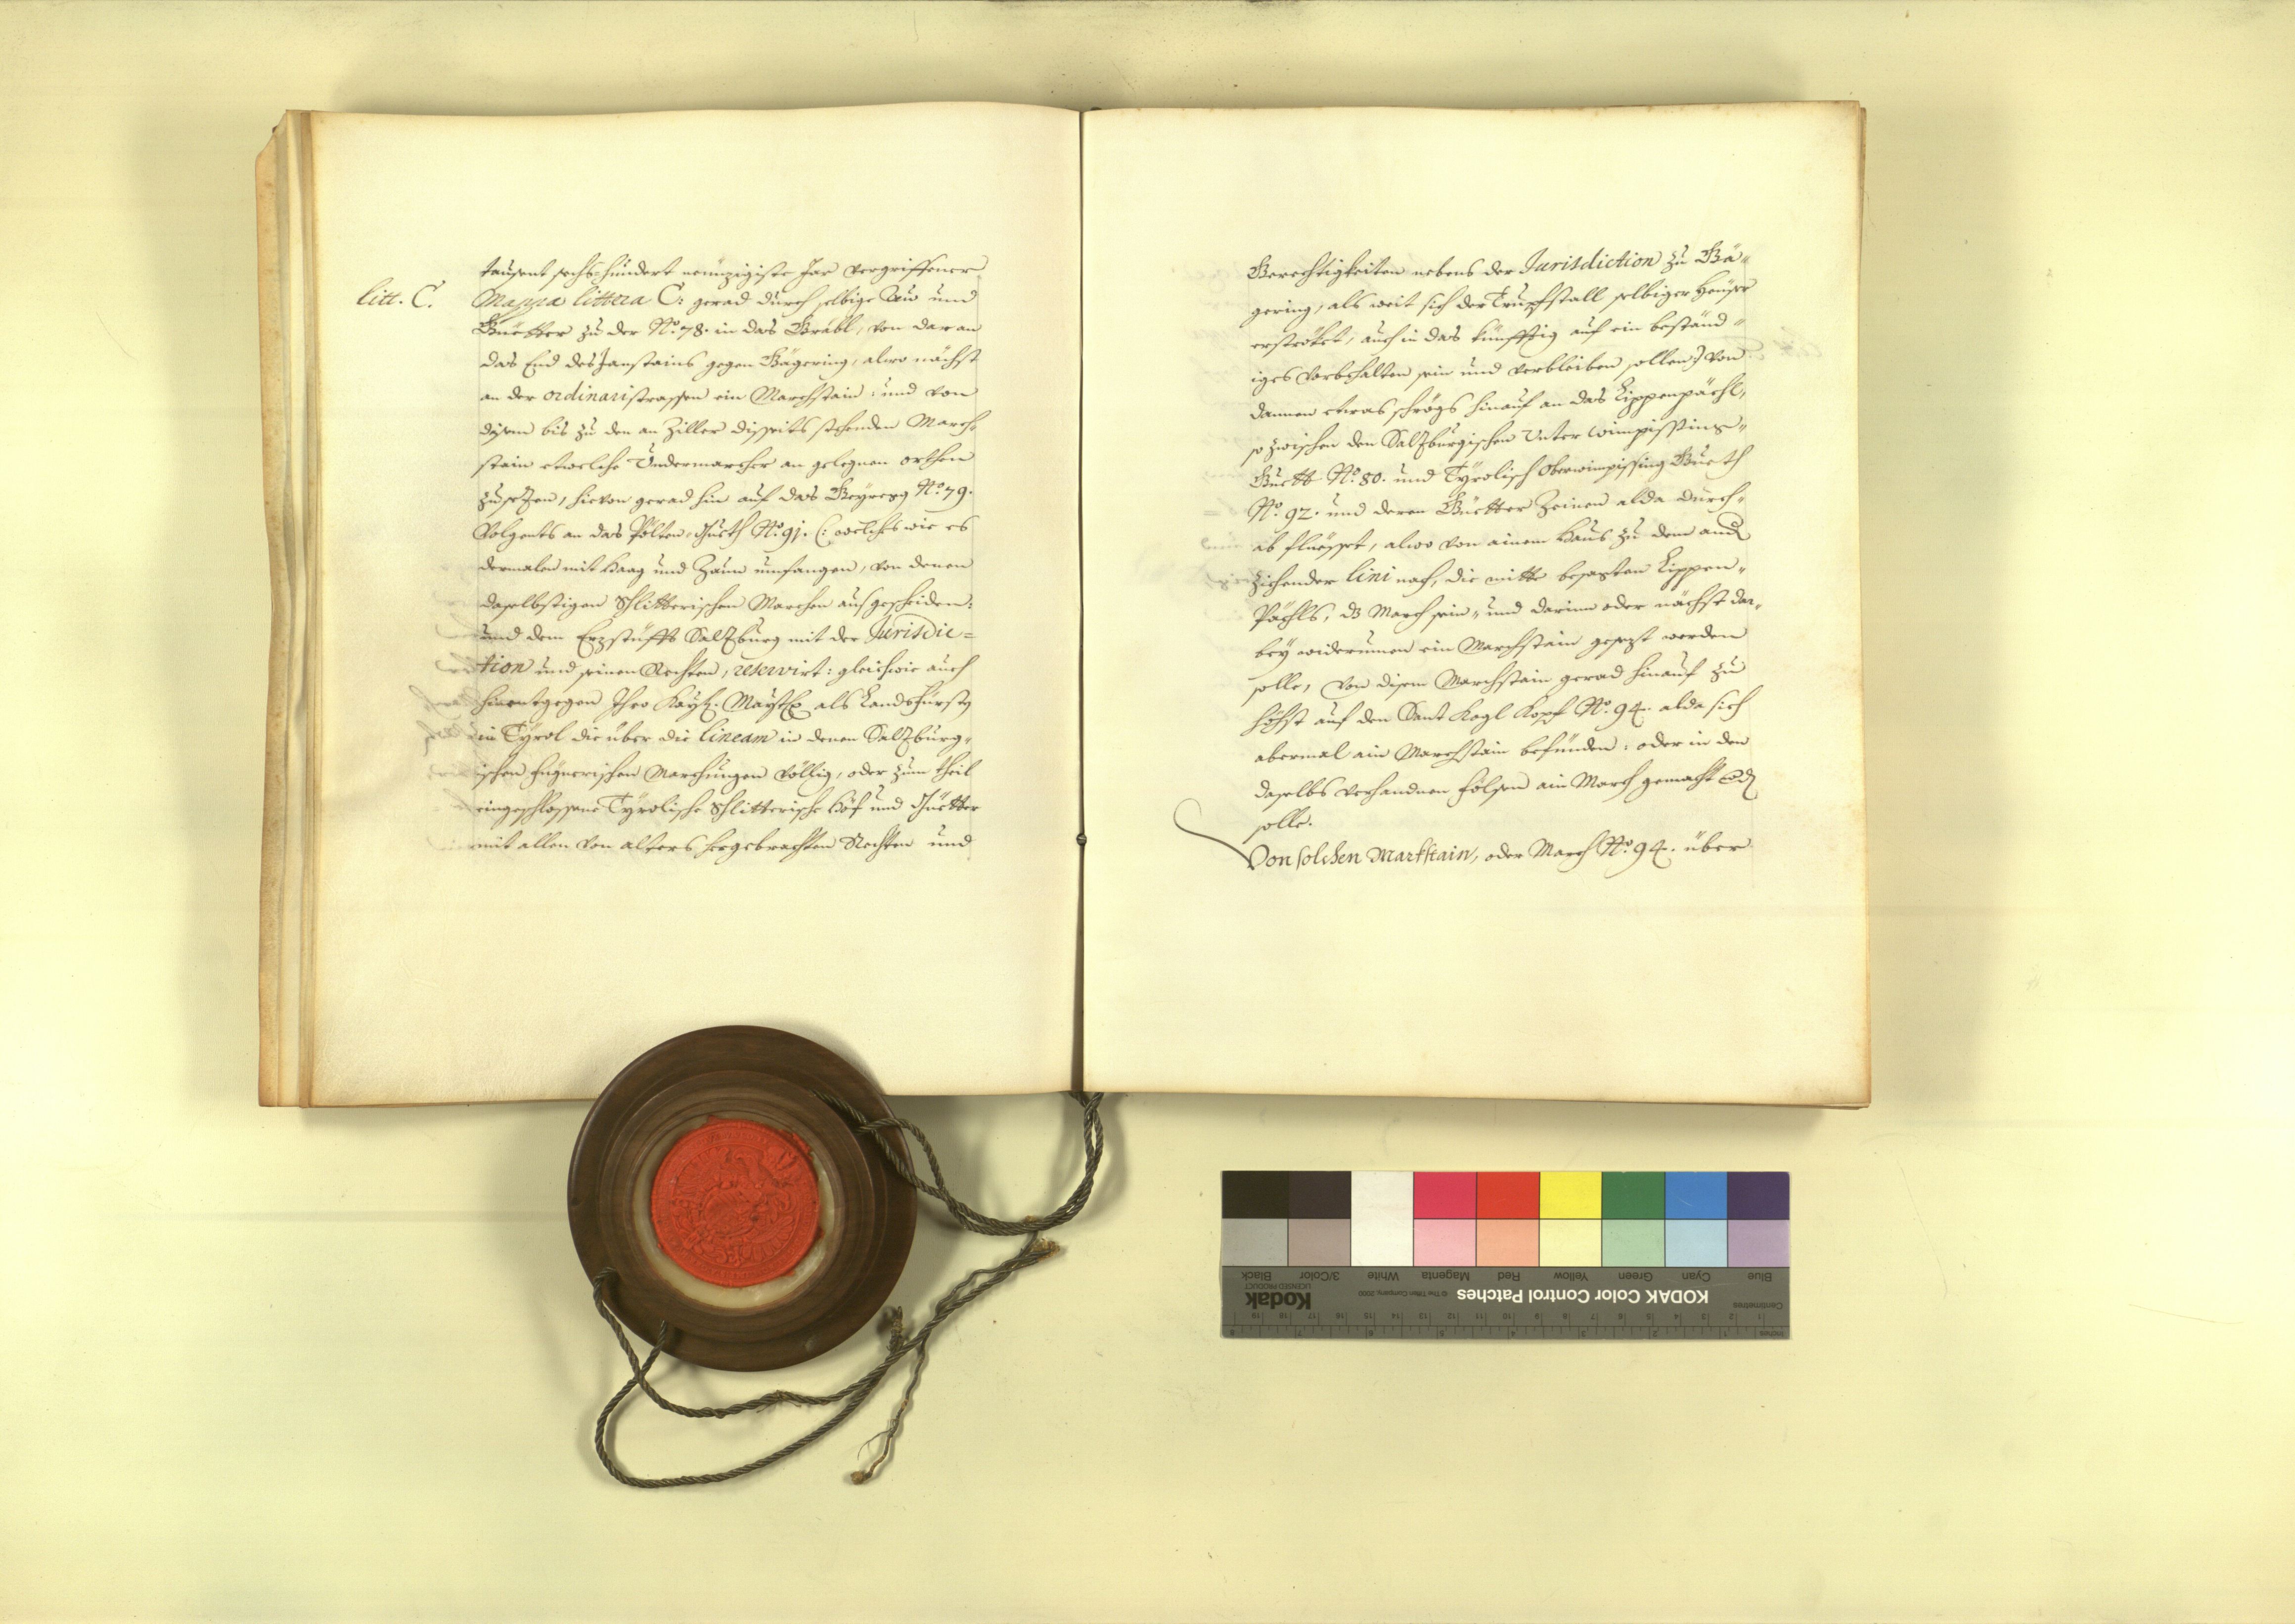 litt. C.
tausent sechs-hundert neunzigiste Jar vergriffener
Mappa littera C: gerad durch selbige Au und
Güetter zu der No. 78. in das Gräbl, von dar an
das End des stains gegen Gägering, alwo nächst
an der ordinari strassen ein Marchstain: und von
disem bis zu den an Ziller disseits stehenden March-
stain etwelche Undermarcher an gelegnen orthen
zusezen, hievon gerad hin auf das No. 79.
Volgents an das Gueth No. 91. (: welches wie es
dermalen mit Haag und Zaun umfangen, von denen
daselbstigen Schlitterischen Marchen ausgescheiden:
und dem Erzstüfft Salzburg mit der Jurisdic=
tion und seinen Rechten, reservirt: gleichwie auch
hinentgegen Ihro Kayl. Mayt. als Landsfürst
in Tyrol die über die lineam in denen Salzburg-
ischen Fügnerischen Marchungen völlig, oder zum theil
eingeschlossene Tyrolische Schlitterische Höf und Güetter
mit allen von alters hergebrachten Rechten und
Gerechtigkeiten nebens der Jurisdiction zu Gä-
gering, als weit sich der Trupfstall selbiger Heuser
erströket, auch in das künfftig auf ein beständ-
iges vorbehalten sein und verbleiben sollen:) von
dannen etwas schrögs hinauf an das Lippenpächl,
so zwischen den Salzburgischen Unter wimpissing-
Guett No. 80. und Tyrolisch Oberwimpissing Gueth
No. 92. und deren Güetter Zeinen alda durch-
ab fluesset, alwo von ainem Haus zu dem and
ziehender lini nach, die mitte besagten Lippen-
Pächls, dz March sein, und darinn oder nächst dar-
bey widerumen ein Marchstain gesezt werden
solle, Von disem Marchstain gerad hinauf zu
höchst auf den Sant Kogl Kopf No. 94. alda sich
abermal ain Marchstain befünden: oder in den
daselbs verhandnen Fölsen ain March gemacht
solle.
Von solchen Markstain, oder March No. 94. über
KODAK Color Control Patches
Kodak
LICENSED PRODUCT
© The Tiffen Company, 2000
Blue Cyan Green Yellow Red Magenta White 3/Color Black
Centimetres
Inches